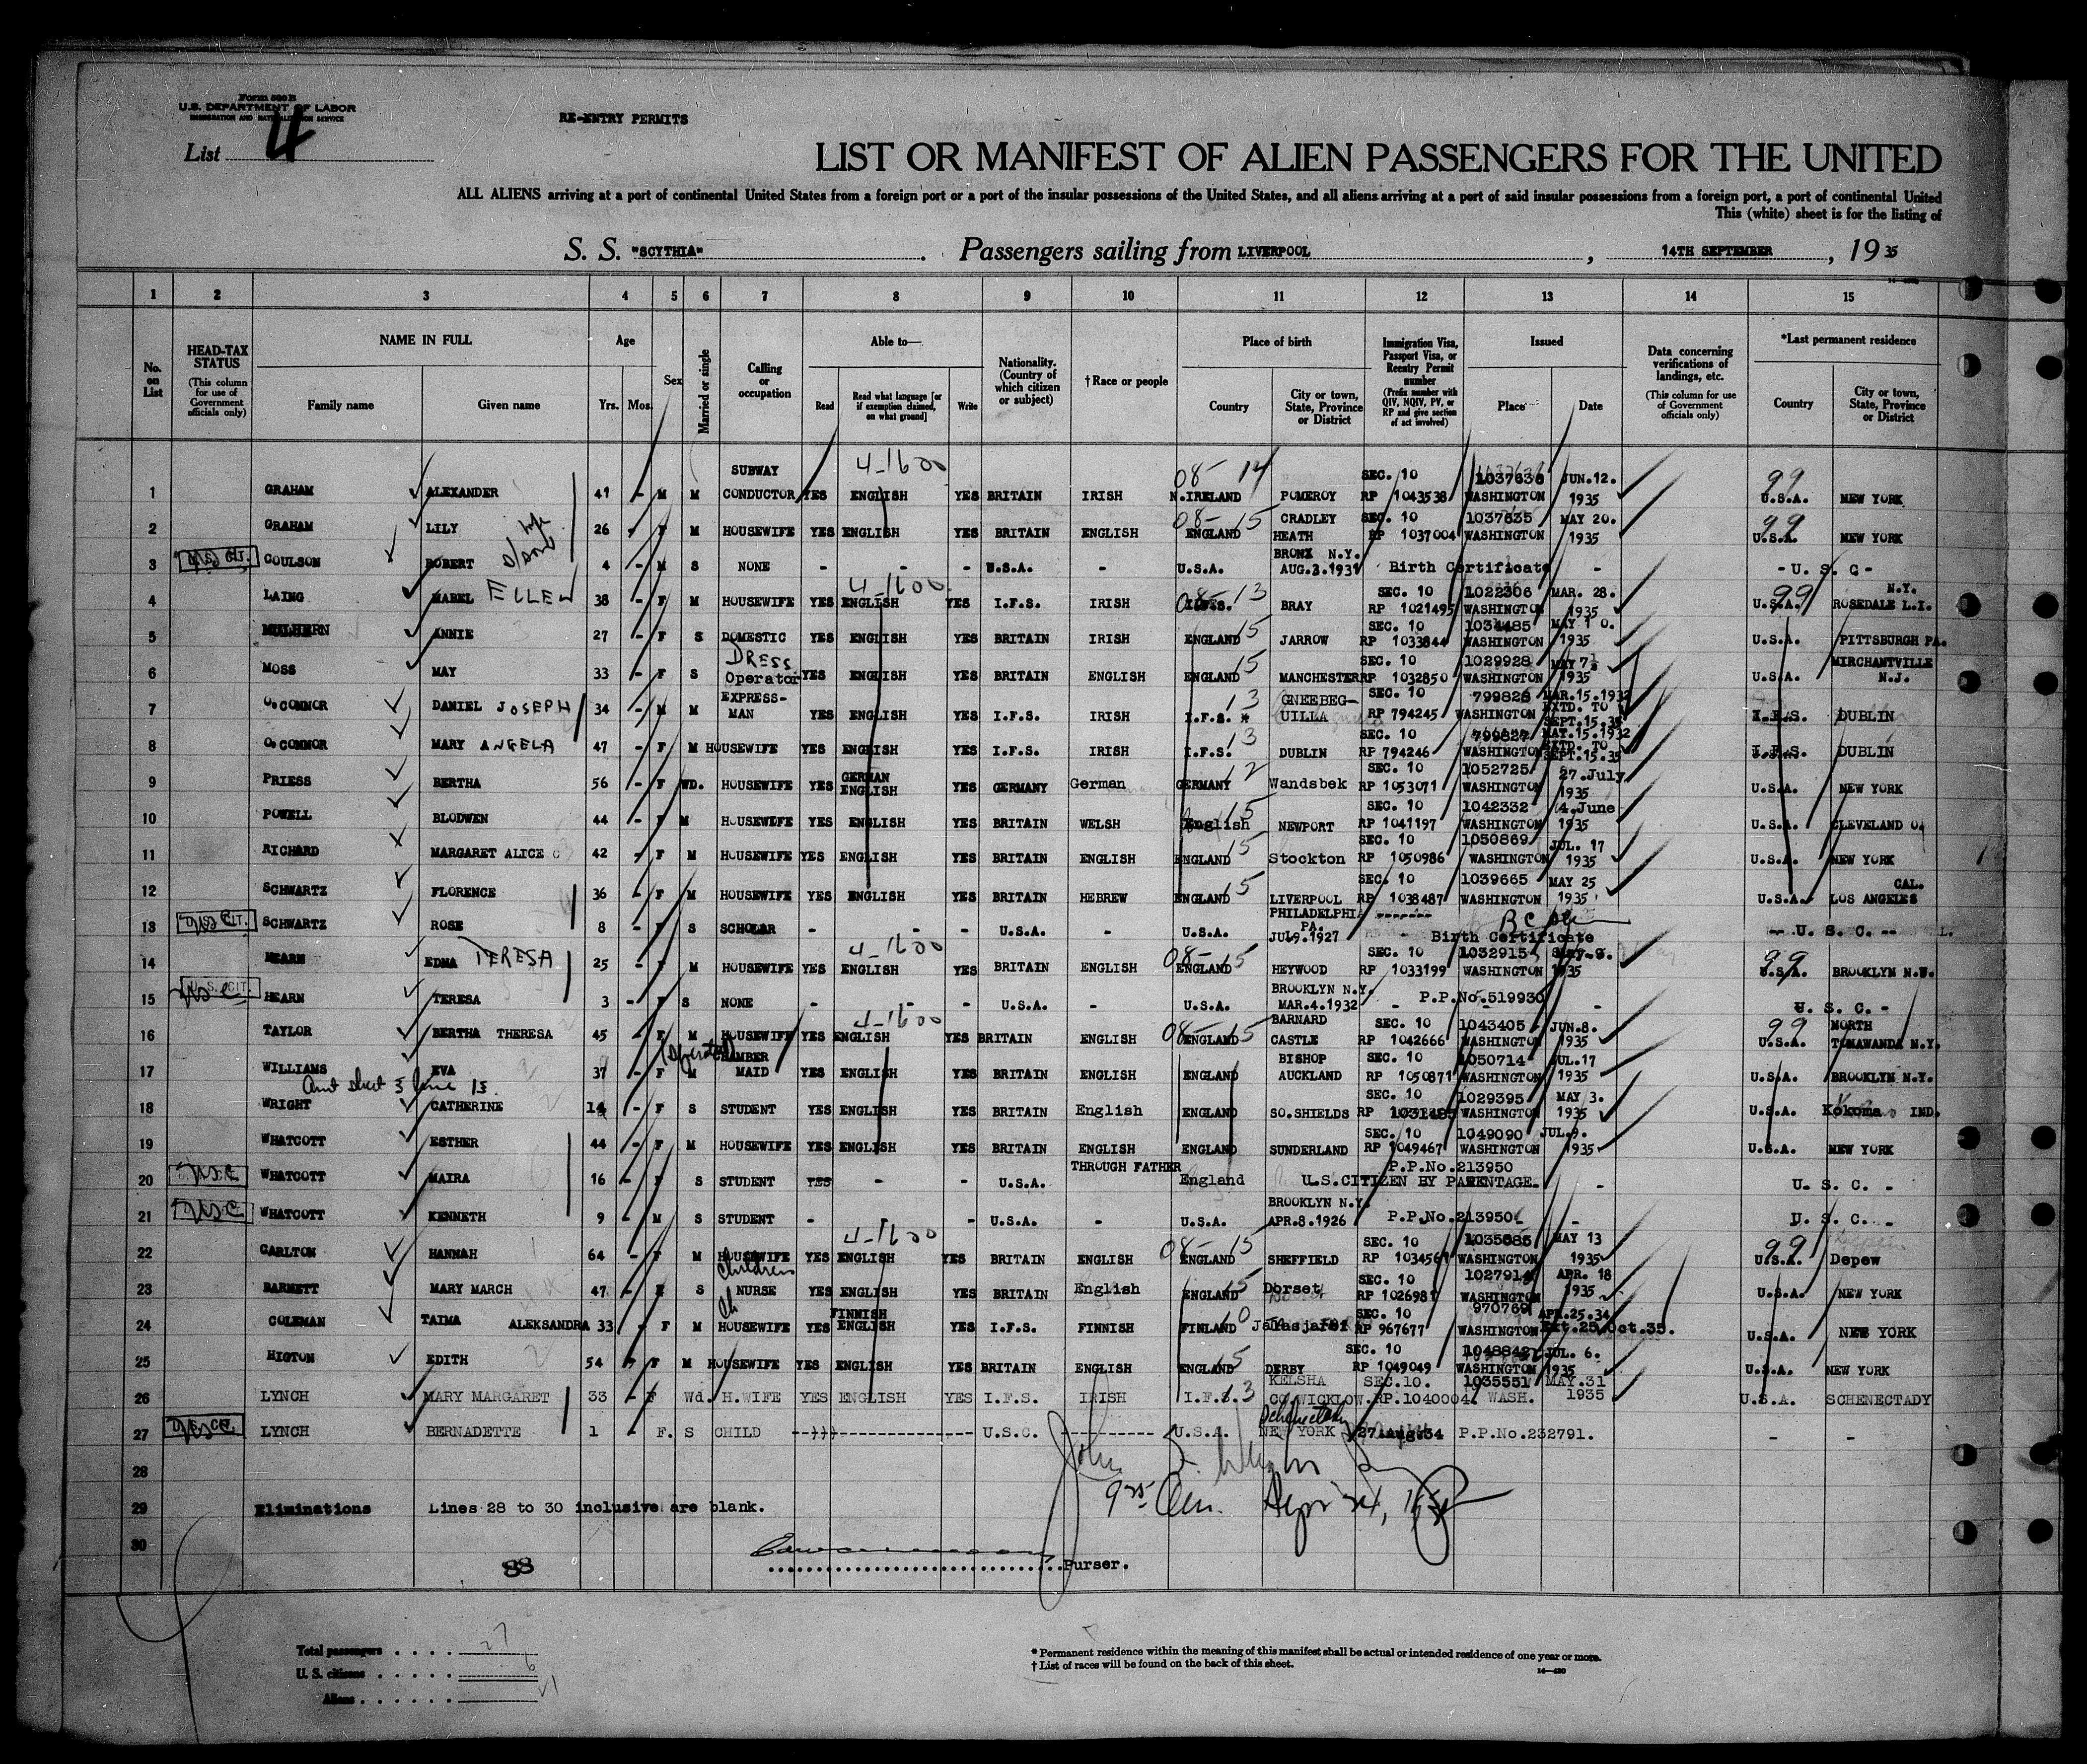 Form 500 B
U.S. DEPARTMENT OF LABOR
IMMIGRATION AND NATURALIZATION SERVICE
RE-ENTRY PERMITS
List 4
LIST OR MANIFEST OF ALIEN PASSENGERS FOR THE UNITED
ALL ALIENS arriving at a port of continental United States from a foreign port or a port of the insular possessions of the United States, and all aliens arriving at a port of said insular possessions from a foreign port, a port of continental United
This (white) sheet is for the listing of
S. S. "SCYTHIA" . Passengers sailing from LIVERPOOL , 14TH SEPTEMBER , 19 35
1 2 3 4 5 6 7 8 9 10 11 12 13 14 15
No. on List
HEAD-TAX STATUS (This column for use of Government officials only)
NAME IN FULL Family name Given name
Age Yrs. Mos.
Sex
Married or single
Calling or occupation
Able to— Read Read what language [or if exemption claimed, on what ground] Write
Nationality. (Country of which citizen or subject)
†Race or people
Place of birth Country City or town, State, Province or District
Immigration Visa, Passport Visa, or Reentry Permit number (Prefix number with QIV, NQIV, PV, or RP and give section of act involved)
Issued Place Date
Data concerning verifications of landings, etc. (This column for use of Government officials only)
*Last permanent residence Country City or town, State, Province or District
SUBWAY 4-1600 08- 14 SEC. 10 1037636 JUN.12. 99
1 GRAHAM ALEXANDER 41 - M M CONDUCTOR YES ENGLISH YES BRITAIN IRISH N.IRELAND POMEROY RP 1043538 WASHINGTON 1935 U.S.A. NEW YORK
08- 15 CRADLEY SEC. 10 1037635 MAY 20. 99
2 GRAHAM LILY 26 - F M HOUSEWIFE YES ENGLISH YES BRITAIN ENGLISH ENGLAND HEATH RP 1037004 WASHINGTON 1935 U.S.A. NEW YORK
BRONX N.Y.
3 U.S. CIT. COULSON ROBERT 4 - M S NONE - - - U.S.A. - U.S.A. AUG.3.1931 Birth Certificate - - U. S. C -
4-1600 08- 13 SEC. 10 1022306 MAR. 28. 99 N.Y.
4 LAING MABEL ELLEN 38 - F M HOUSEWIFE YES ENGLISH YES I.F.S. IRISH I.F.S. BRAY RP 1021495 WASHINGTON 1935 U.S.A. ROSEDALE L.I.
15 SEC. 10 1034485 MAY 1 0.
5 MULHERN ANNIE 27 - F S DOMESTIC YES ENGLISH YES BRITAIN IRISH ENGLAND JARROW RP 1033844 WASHINGTON 1935 U.S.A. PITTSBURGH PA.
DRESS 15 SEC. 10 1029928 MAY 7 MIRCHANTVILLE
6 MOSS MAY 33 - F S Operator YES ENGLISH YES BRITAIN ENGLISH ENGLAND MANCHESTER RP 1032850 WASHINGTON 1935 U.S.A. N.J.
EXPRESS- 13 GNEEBEG- SEC. 10 799826 MAR.15.1932 EXTD. TO
7 O.CONNOR DANIEL JOSEPH 34 - M M MAN YES ENGLISH YES I.F.S. IRISH I.F.S. UILLA RP 794245 WASHINGTON SEPT.15.35 I.F.S. DUBLIN
13 SEC. 10 799827 MAT.15.1932 EXTD. TO
8 O.CONNOR MARY ANGELA 47 - F M HOUSEWIFE YES ENGLISH YES I.F.S. IRISH I.F.S. DUBLIN RP 794246 WASHINGTON SEPT.15.35 I.F.S. DUBLIN
GERMAN 12 SEC. 10 1052725 27.July
9 PRIESS BERTHA 56 - F WD. HOUSEWIFE YES ENGLISH YES GERMANY German GERMANY Wandsbek RP 1053071 WASHINGTON 1935 U.S.A. NEW YORK
15 SEC. 10 1042332 4.June
10 POWELL BLODWEN 44 - F M HOUSEWIFE YES ENGLISH YES BRITAIN WELSH English NEWPORT RP 1041197 WASHINGTON 1935 U.S.A. CLEVELAND O.
15 SEC. 10 1050869 JUL. 17
11 RICHARD MARGARET ALICE 42 - F M HOUSEWIFE YES ENGLISH YES BRITAIN ENGLISH ENGLAND Stockton RP 1050986 WASHINGTON 1935 U.S.A. NEW YORK
15 SEC. 10 1039665 MAY 25 CAL.
12 SCHWARTZ FLORENCE 36 - F M HOUSEWIFE YES ENGLISH YES BRITAIN HEBREW ENGLAND LIVERPOOL RP 1038487 WASHINGTON 1935 U.S.A. LOS ANGELES
PHILADELPHIA PA.
13 U.S. CIT. SCHWARTZ ROSE 8 - F S SCHOLAR - - - U.S.A. - U.S.A. JUL9.1927 - Birth Certificate -- U. S. C. --
4-1600 08- 15 SEC. 10 1032915 May.9. 99
14 HEARN EDNA TERESA 25 - F M HOUSEWIFE YES ENGLISH YES BRITAIN ENGLISH ENGLAND HEYWOOD RP 1033199 WASHINGTON 1935 U.S.A. BROOKLYN N.W.
BROOKLYN N.Y.
15 U.S. CIT. HEARN TERESA 3 - F S NONE - - - U.S.A. - U.S.A. MAR.4.1932 - P.P.No.519930 - U. S. C. -
4-1600 08- 15 BARNARD SEC. 10 1043405 JUN.8. 99 NORTH
16 TAYLOR BERTHA THERESA 45 - F M HOUSEWIFE YES ENGLISH YES BRITAIN ENGLISH ENGLAND CASTLE RP 1042666 WASHINGTON 1935 U.S.A. TONAWANDA N.Y.
CHAMBER BISHOP SEC. 10 1050714 JUL.17
17 WILLIAMS EVA 37 - F M MAID YES ENGLISH YES BRITAIN ENGLISH ENGLAND AUCKLAND RP 1050871 WASHINGTON 1935 U.S.A. BROOKLYN N.Y.
Aunt sheet 5 line 15. SEC. 10 1029395 MAY 3.
18 WRIGHT CATHERINE 14 - F S STUDENT YES ENGLISH YES BRITAIN English ENGLAND SO.SHIELDS RP 1031485 WASHINGTON 1935 U.S.A. Kokomo IND.
SEC. 10 1049090 JUL.9.
19 WHATCOTT ESTHER 44 - F M HOUSEWIFE YES ENGLISH YES BRITAIN ENGLISH ENGLAND SUNDERLAND RP 1049467 WASHINGTON 1935 U.S.A. NEW YORK
THROUGH FATHER P.P.No.213950
20 USC WHATCOTT MAIRA 16 - F S STUDENT YES - - U.S.A. England U.S.CITIZEN BY PARENTAGE. - U. S. C. -
BROOKLYN N.Y.
21 USC WHATCOTT KENNETH 9 - M S STUDENT - - - U.S.A. - U.S.A. APR.8.1926 P.P.No.213950 - U. S. C. -
4-1600 08- 15 SEC. 10 1035685 MAY 13 99
22 CARLTON HANNAH 64 - F M HOUSEWIFE YES ENGLISH YES BRITAIN ENGLISH ENGLAND SHEFFIELD RP 1034561 WASHINGTON 1935 U.S.A. Depew
Childrens 15 SEC. 10 1027914 APR. 18
23 BARNETT MARY MARCH 47 - F S NURSE YES ENGLISH YES BRITAIN English ENGLAND Dorset RP 1026981 WASHINGTON 1935 U.S.A. NEW YORK
FINNISH 10 SEC. 10 970769 APR.25.34
24 COLEMAN TAIMA ALEKSANDRA 33 - F M HOUSEWIFE YES ENGLISH YES I.F.S. FINNISH FINLAND RP 967677 WASHINGTON Ext.25.Oct.35. U.S.A. NEW YORK
15 SEC. 10 1048842 JUL. 6.
25 HIGTON EDITH 54 - F M HOUSEWIFE YES ENGLISH YES BRITAIN ENGLISH ENGLAND DERBY RP 1049049 WASHINGTON 1935 U.S.A. NEW YORK
KELSHA SEC.10. 1035551 MAY.31
26 LYNCH MARY MARGARET 33 - F Wd. H.WIFE YES ENGLISH YES I.F.S. IRISH I.F.S. 13 CO.WICKLOW. RP.1040004. WASH. 1935 U.S.A SCHENECTADY
Schenectady
27 U.S. CIT. LYNCH BERNADETTE 1 - F. S CHILD U.S.C. U.S.A. NEW YORK 27.Aug.34 P.P.No.232791. - -
28
29 Eliminations Lines 28 to 30 inclusive are blank.
30
88
Purser.
Total passengers 27
U. S. citizens 6
Aliens 21
* Permanent residence within the meaning of this manifest shall be actual or intended residence of one year or more.
† List of races will be found on the back of this sheet.